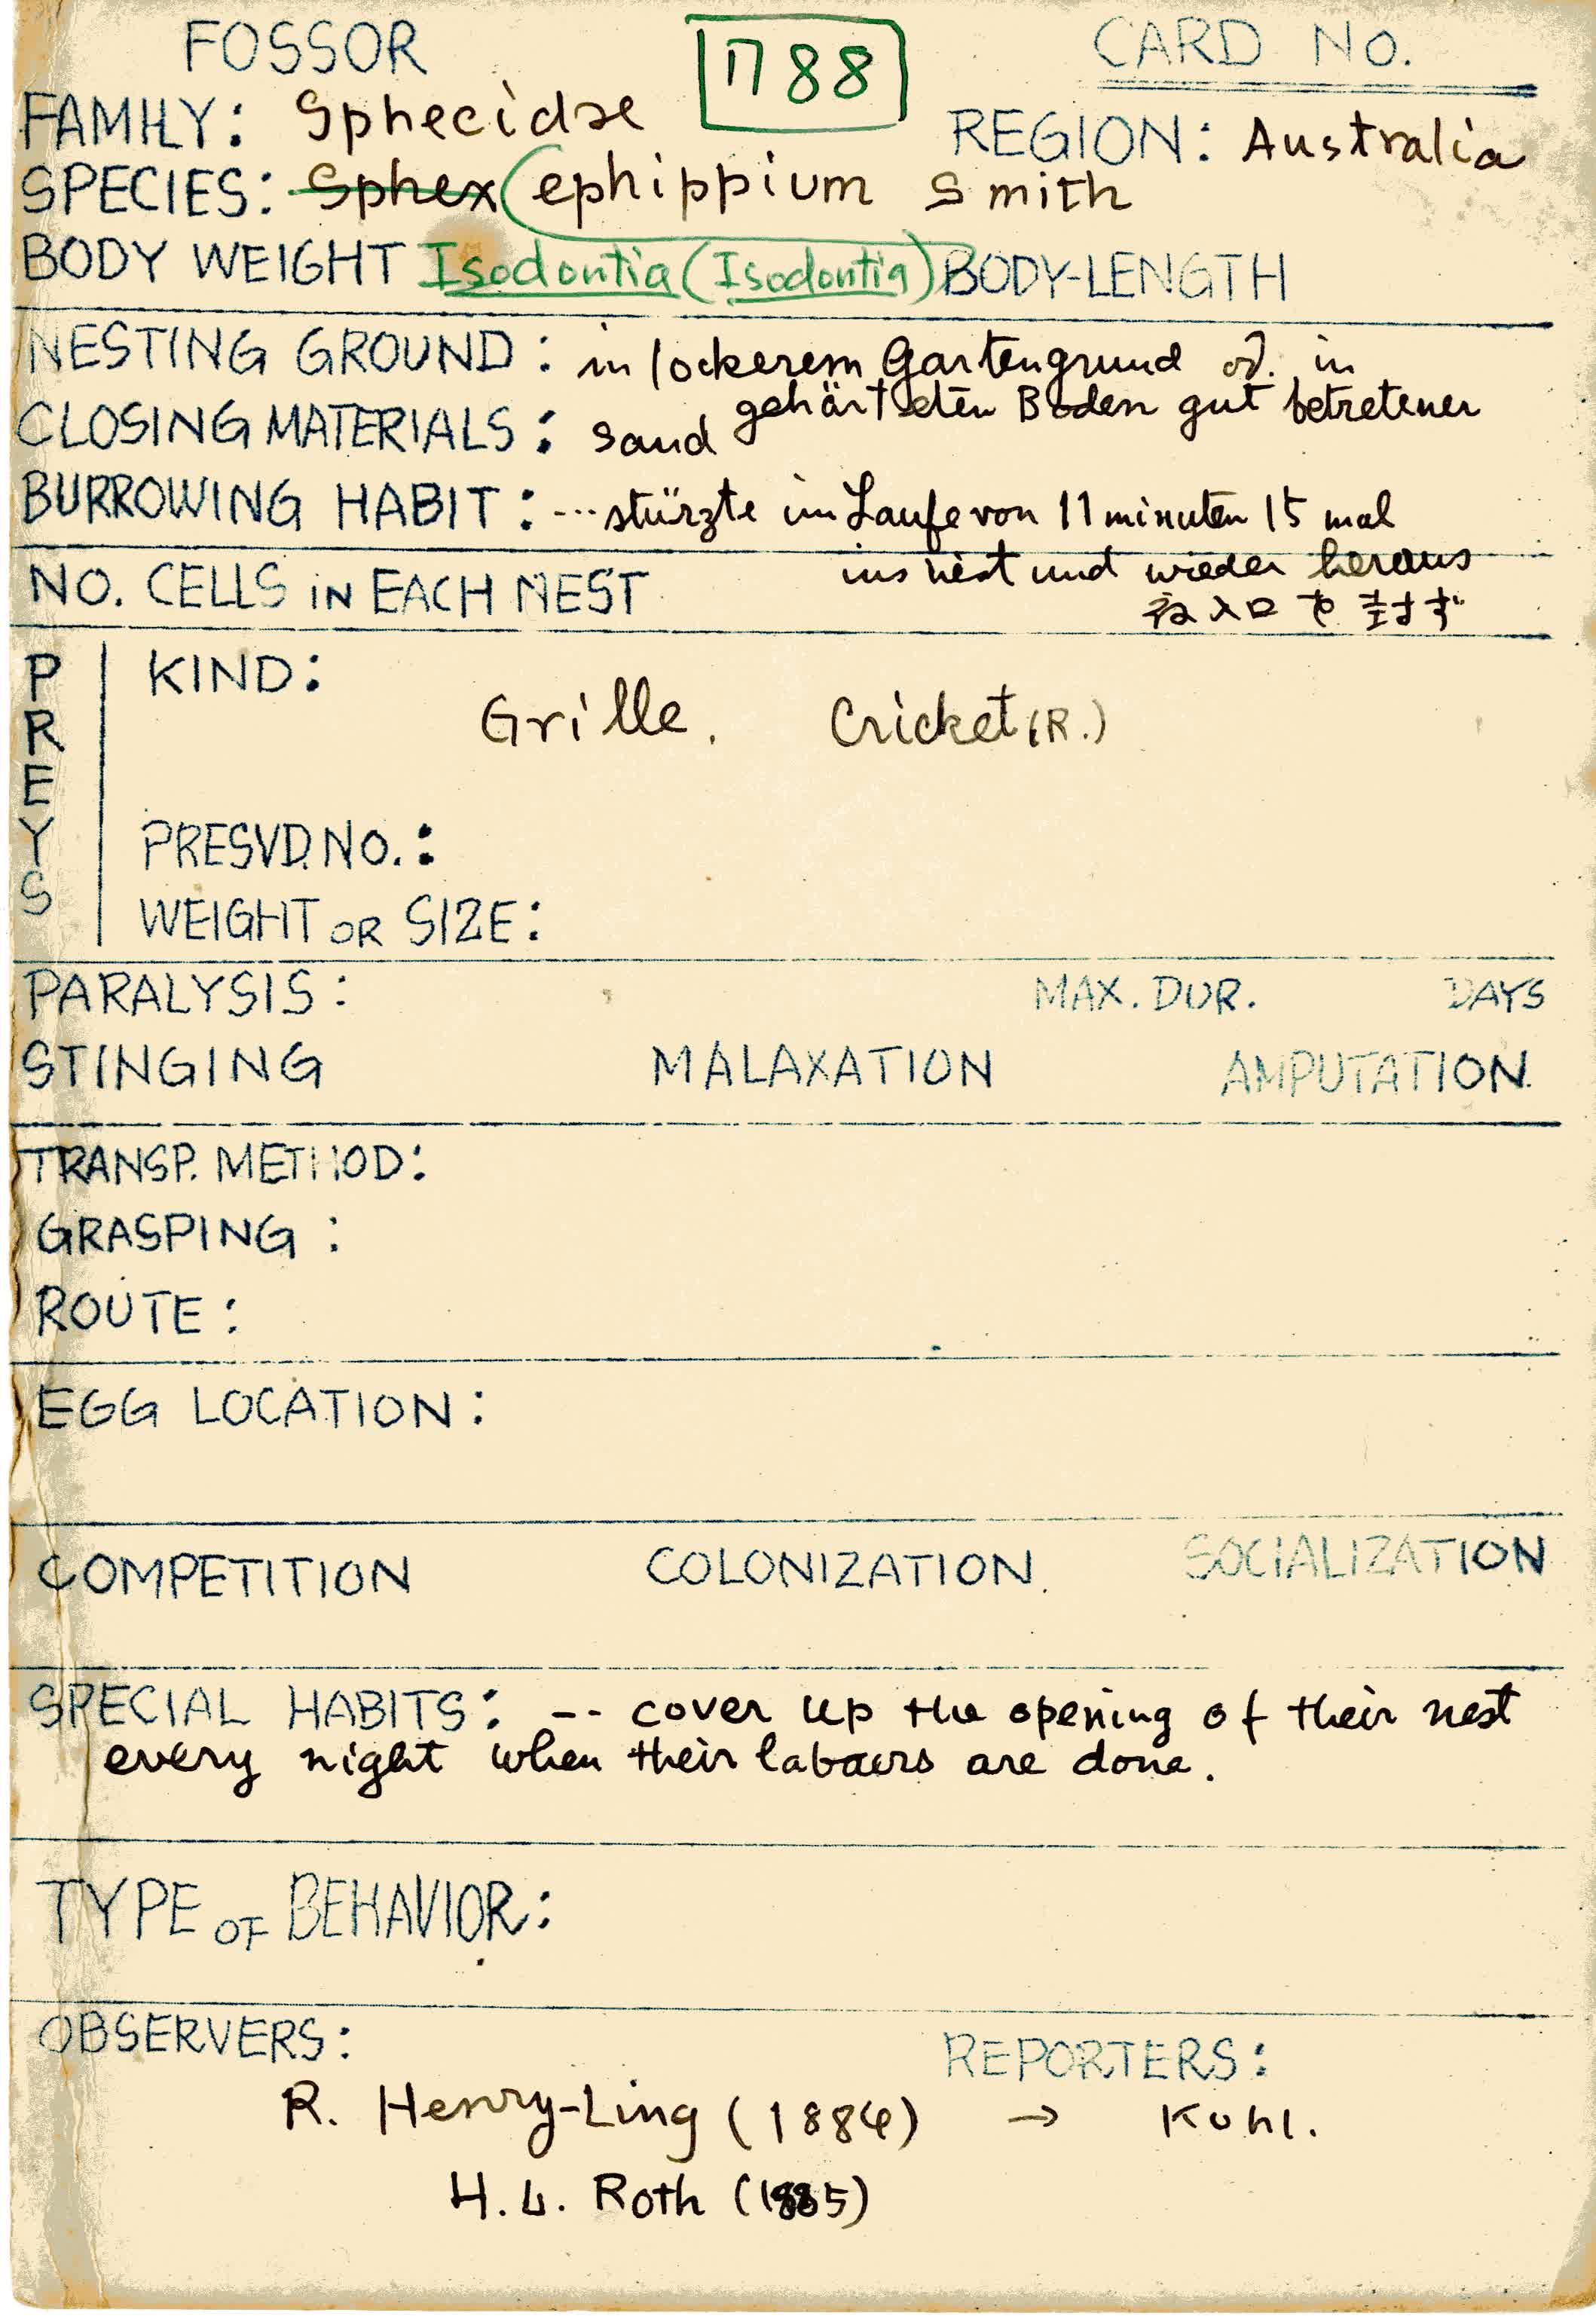 FOSSOR 1788 CARD NO.
FAMILY: Sphecidae REGION: Australia
SPECIES: Sphex (ephippium Smith
BODY WEIGHT Isodontia (Isodontia) BODY-LENGTH
NESTING GROUND: in lockerem Gartengrund od. in
gehärteten Boden gut betretener
CLOSING MATERIALS: Sand
BURROWING HABIT: ... stürzte im Laufe von 11 minuten 15 mal
ins nest und wieder heraus
NO. CELLS IN EACH NEST
夜入口を封ず
PREYS
KIND:
Grille. Cricket (R.)
PRESVD. NO.:
WEIGHT OR SIZE:
PARALYSIS: MAX. DUR. DAYS
STINGING MALAXATION AMPUTATION
TRANSP. METHOD:
GRASPING:
ROUTE:
EGG LOCATION:
COMPETITION COLONIZATION SOCIALIZATION
SPECIAL HABITS: -- cover up the opening of their nest
every night when their labours are done.
TYPE OF BEHAVIOR:
OBSERVERS: REPORTERS:
R. Henry-Ling (1884) → Kohl.
H. L. Roth (1885)